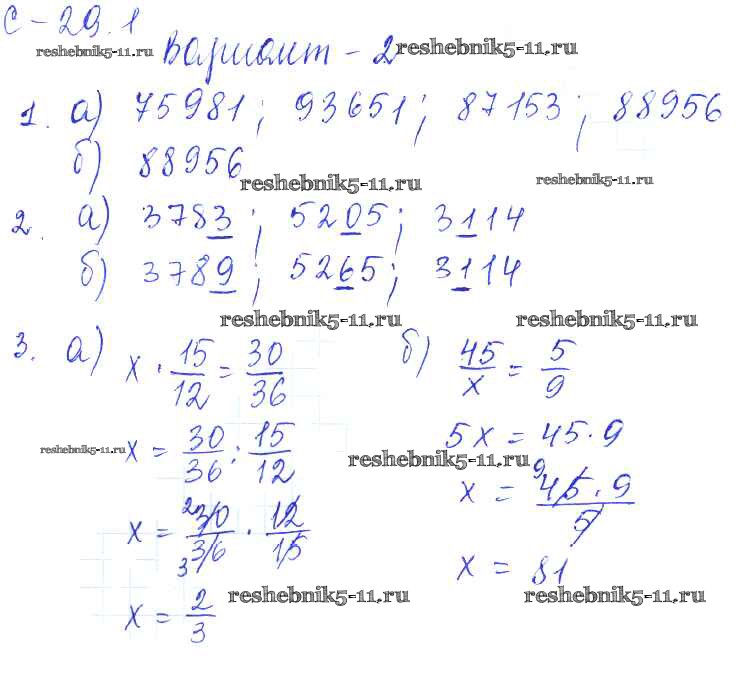 С-29.1
reshebnik5-11.ru Вариант - 2 reshebnik5-11.ru
1. а) 75981; 93651; 87153; 88956
б) 88956
reshebnik5-11.ru reshebnik5-11.ru
2. а) 3783; 5205; 3114
б) 3789; 5265; 3114
reshebnik5-11.ru reshebnik5-11.ru
3. а) x · 15/12 = 30/36 б) 45/x = 5/9
reshebnik5-11.ru x = 30/36 : 15/12 5x = 45·9
reshebnik5-11.ru
x = 2 30/36 3 · 12/15 x = 9 45·9/5
x = 2/3 x = 81
reshebnik5-11.ru reshebnik5-11.ru